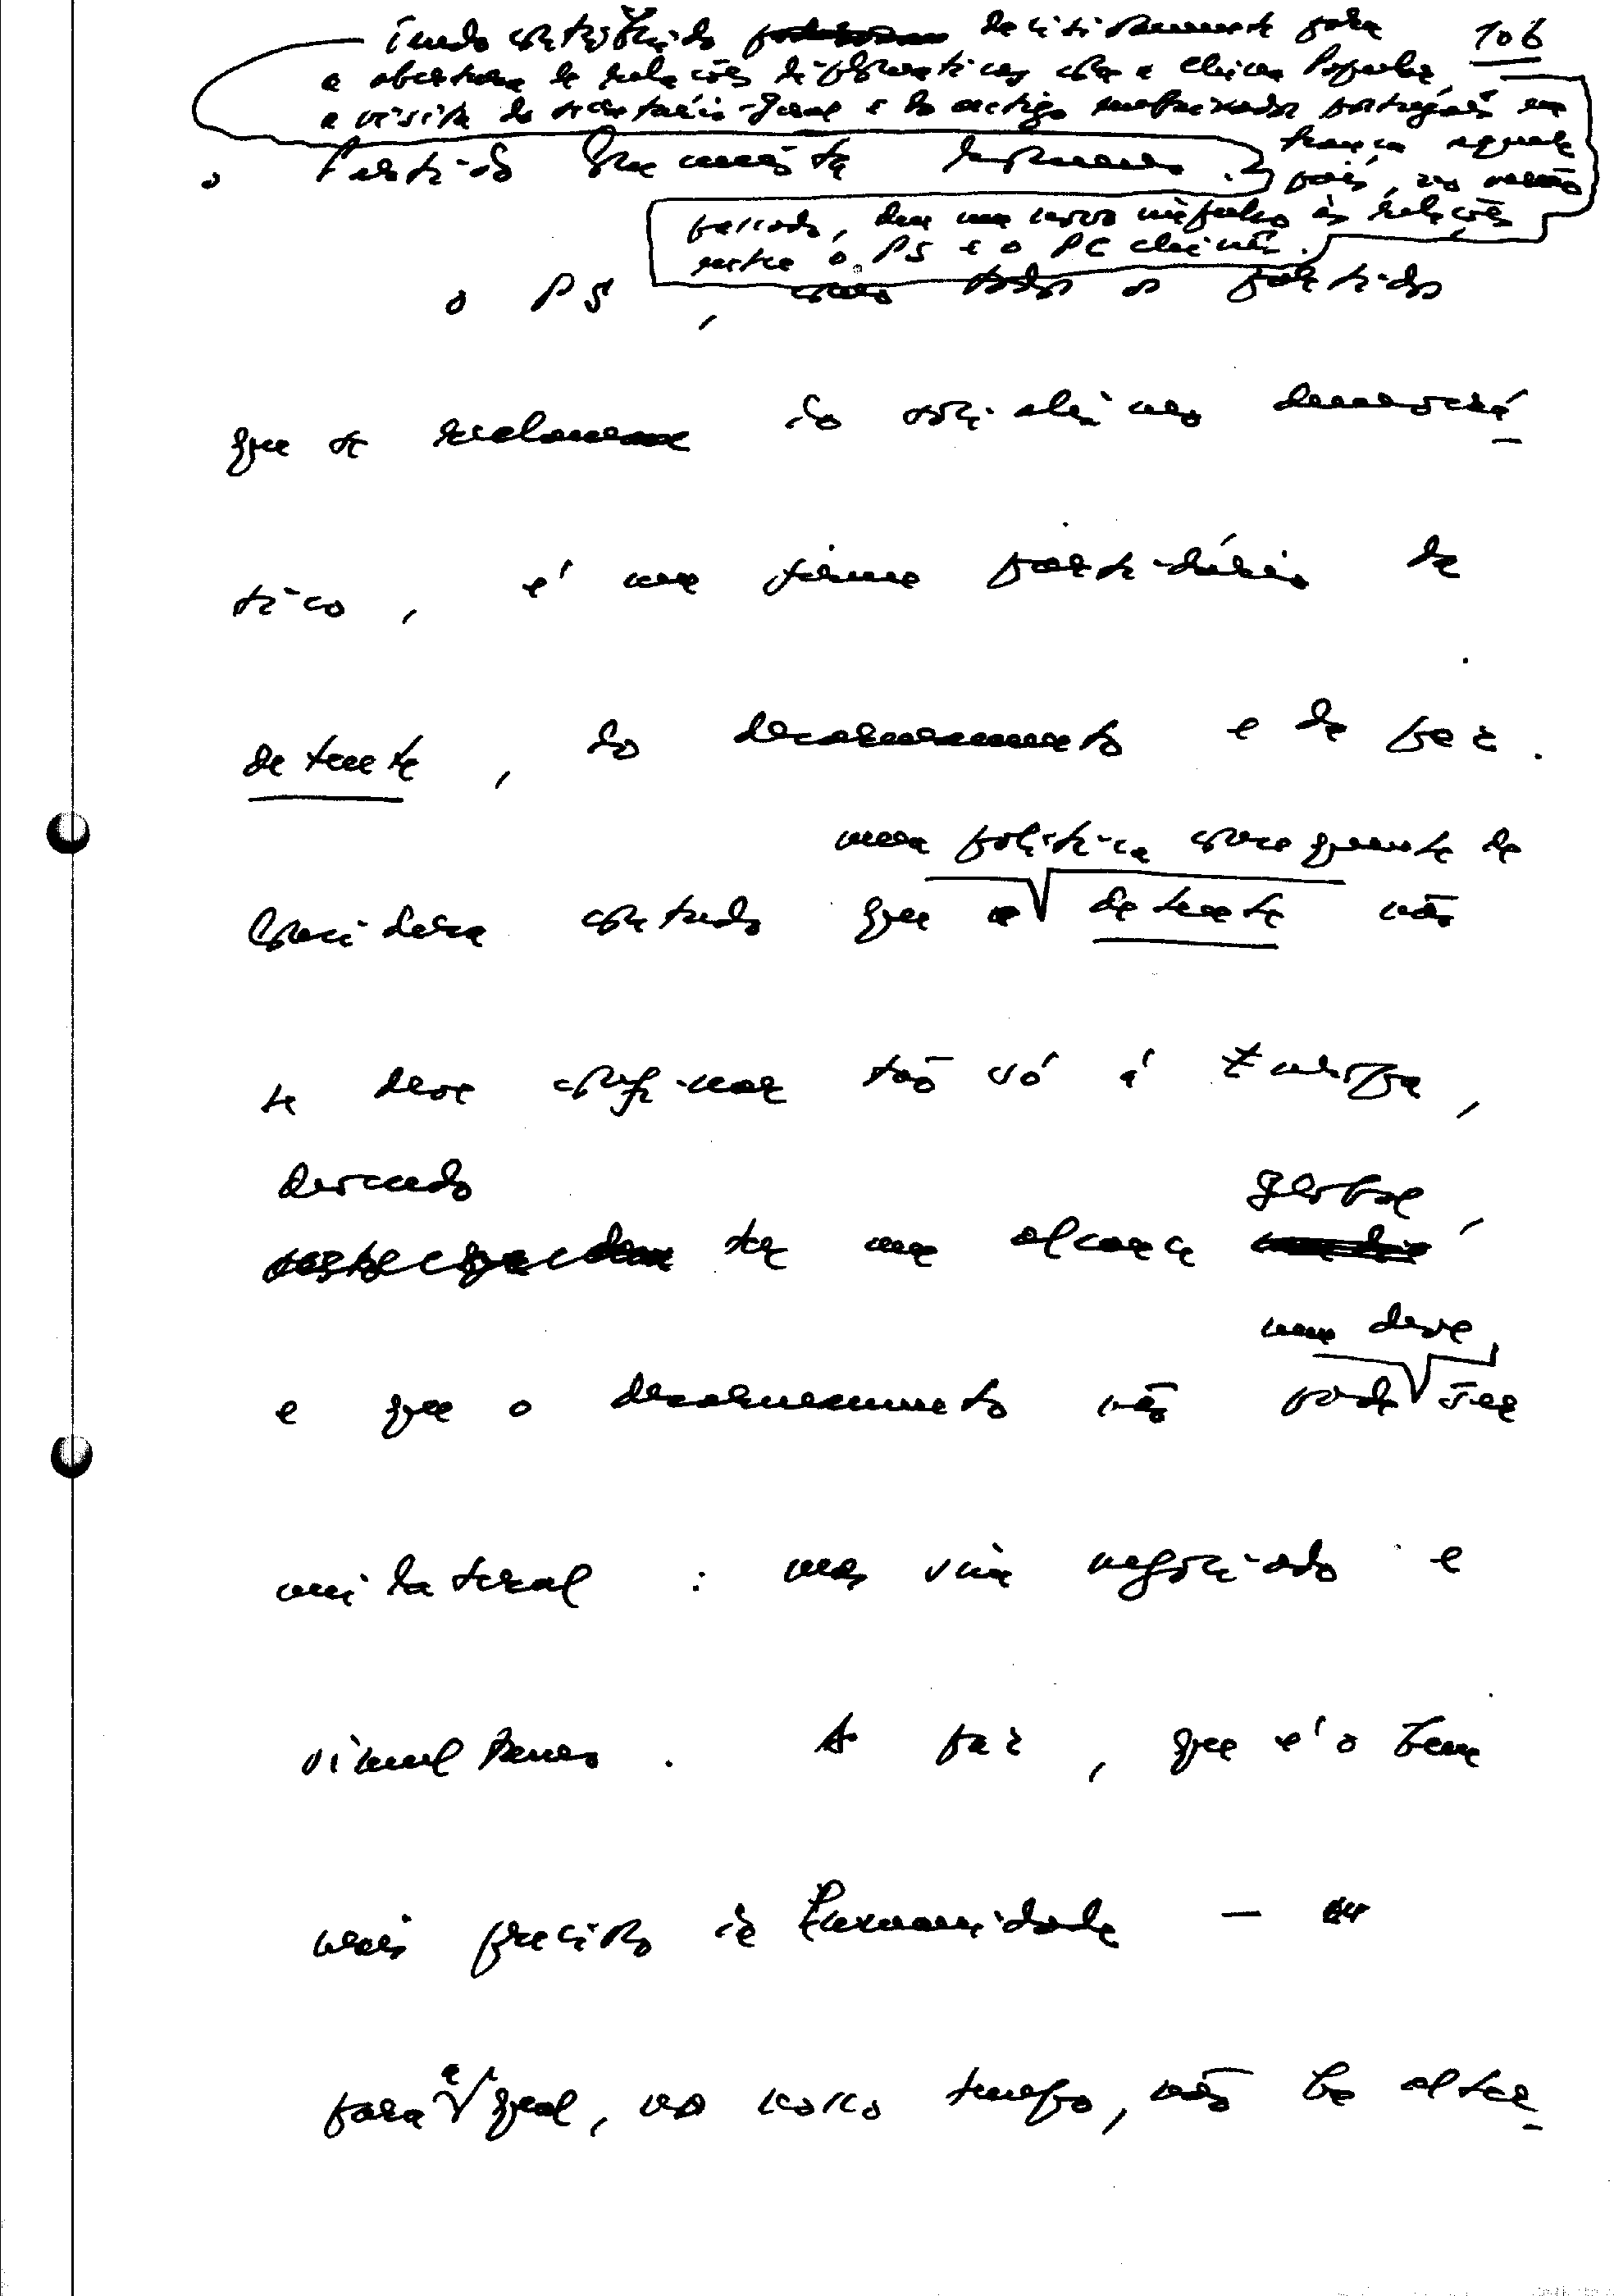 106
Tendo contribuído decisivamente para
a abertura de relações diplomáticas com a China Popular,
a visita do secretário-geral e do antigo embaixador português em
França àquele
o Partido Comunista Jugoslavo.
país, no verão
passado, deu um novo impulso às relações
entre o PS e o PC chinês.
o PS, como todos os partidos
que se reclamam do socialismo democrá-
tico, é um firme partidário da
detente, do desarmamento e da paz.
uma política consequente de
Considera contudo que detente não
se deve confinar tão só à Europa,
devendo global,
ter um alcance
nem deve
e que o desarmamento não pode ser
unilateral: mas sim negociado e
simultâneo. A paz, que é o bem
mais precioso da Humanidade -
para a qual, no nosso tempo, não há alter-